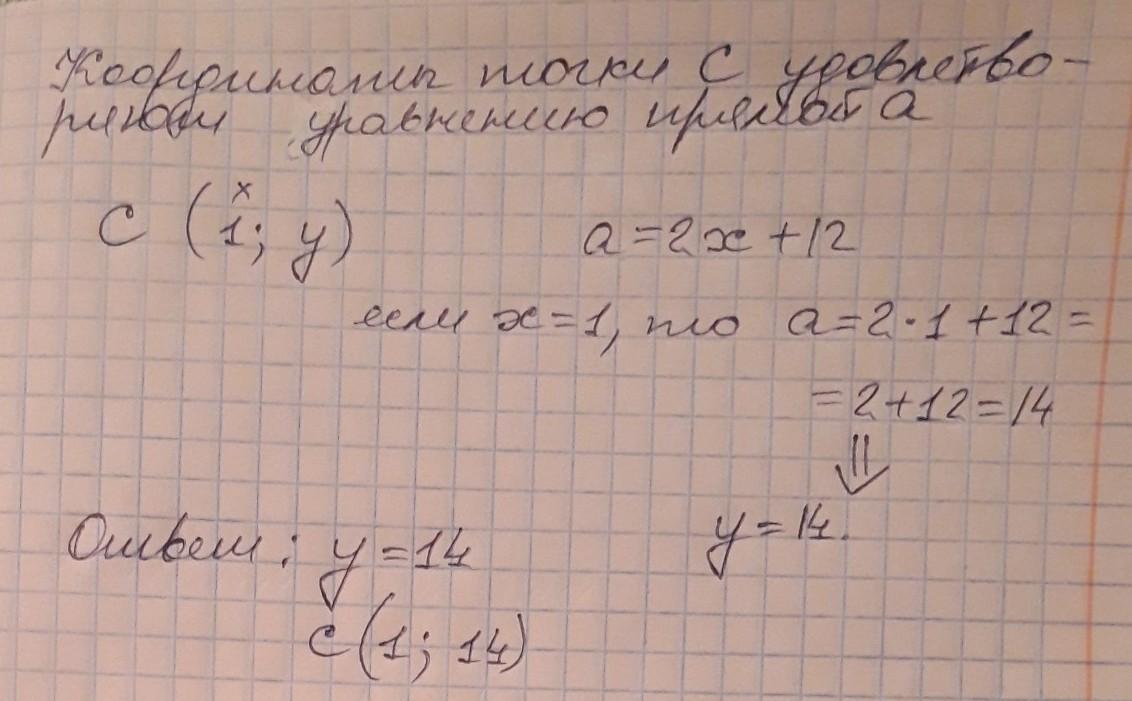 Координаты точки С удовлетво-
ряют уравнению прямой а
x
С (1; y) a=2x+12
если x=1, то a=2·1+12=
=2+12=14
⇓
Ответ: y=14 y=14.
С(1; 14)